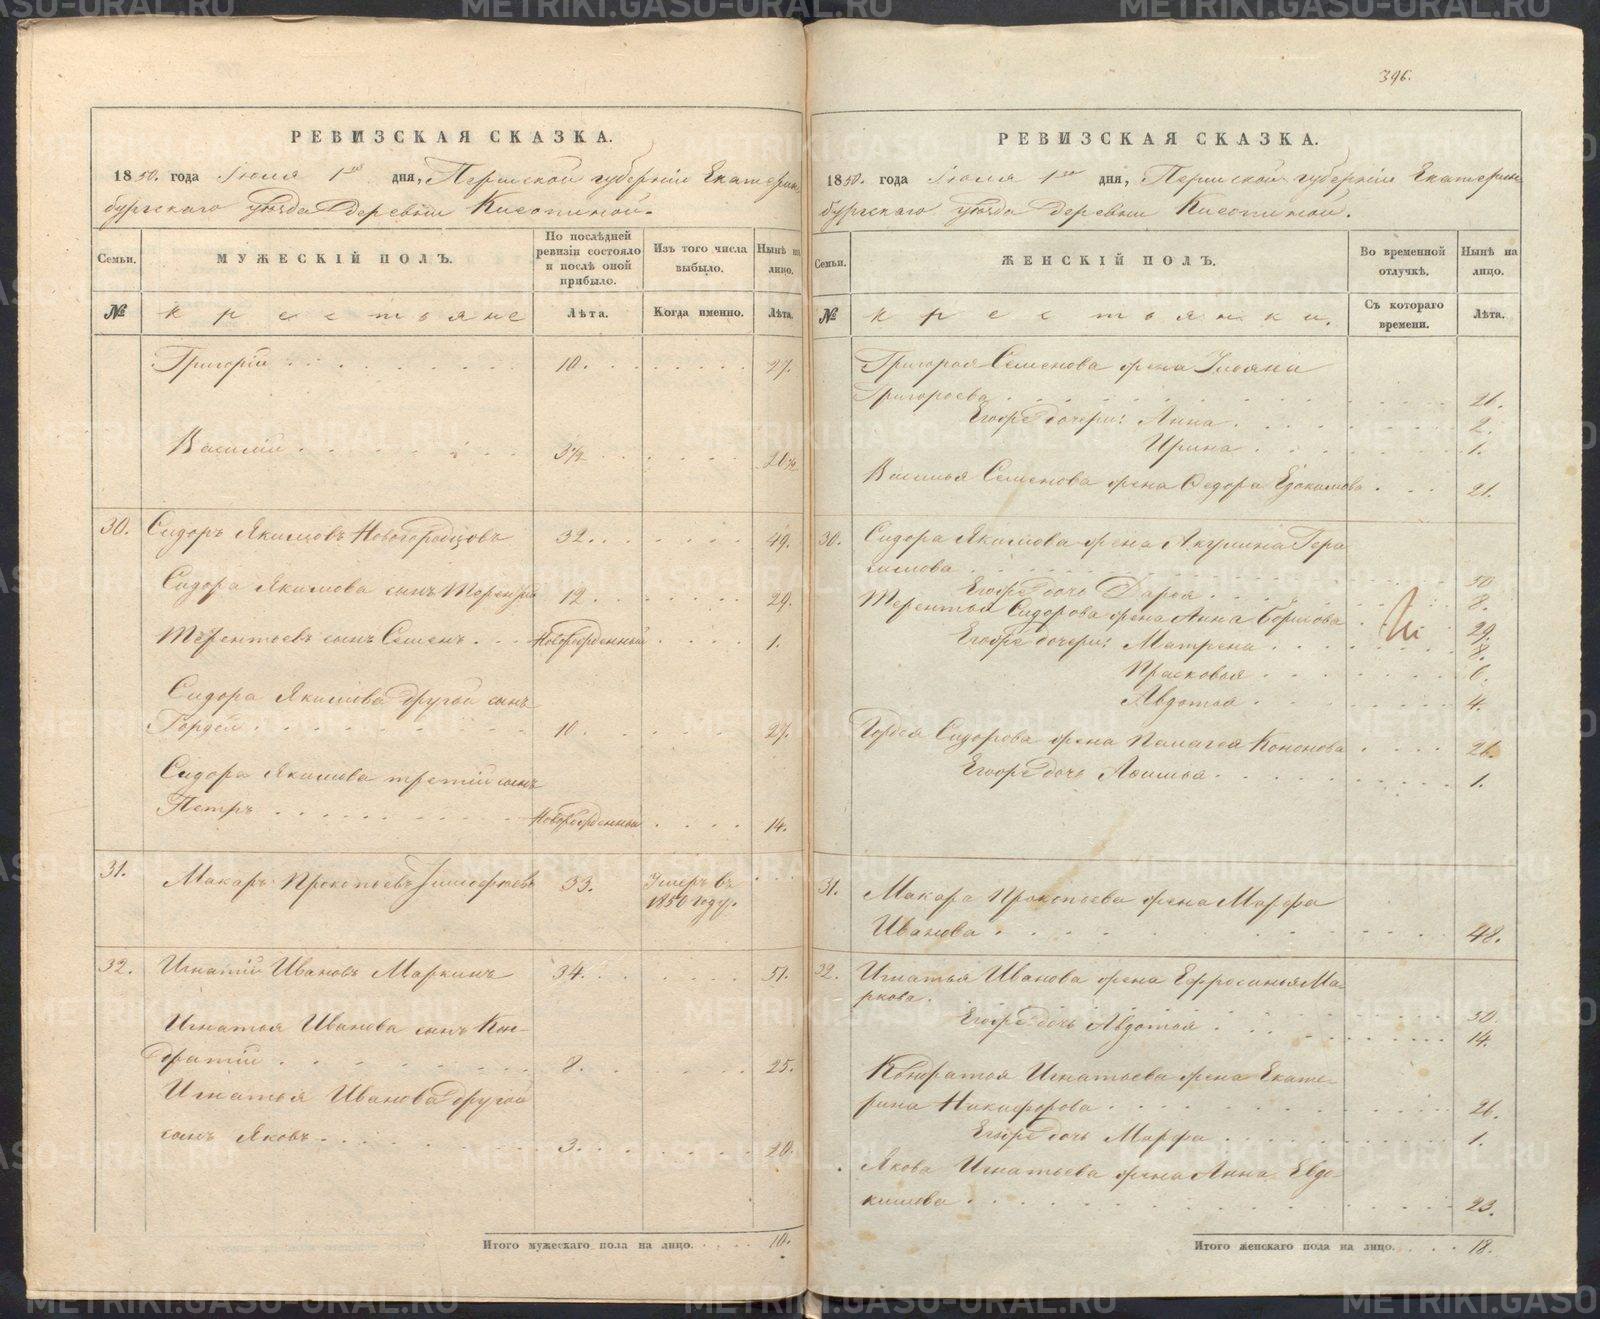 396.
РЕВИЗСКАЯ СКАЗКА.
1850. года Іюля 1го дня, Пермской губерніи Екатерин
бургскаго уѣзда деревни Кисопиной.
Семьи.
МУЖЕСКІЙ ПОЛЪ.
По послѣдней ревизіи состояло и послѣ оной прибыло.
Изъ того числа выбыло.
Нынѣ на лицо.
№
крестьяне
Лѣта.
Когда именно.
Лѣта.
Григорій 10. 27.
Василій 3½ 20½
30. Сидоръ Якимовъ Новогородцовъ 32. 49.
Сидора Якимова сынъ Терентій 12. 29.
Терентьевъ сынъ Семенъ. Новорожденный 1.
Сидора Якимова другой сынъ
Гордей 10. 27.
Сидора Якимова третій сынъ
Петръ Новорожденный 14.
31. Макаръ Прокопьевъ Тимофеевъ 33. Умеръ въ
1850 году.
32. Игнатій Ивановъ Маркинъ 34. 51.
Игнатья Иванова сынъ Кон-
дратій 8. 25.
Игнатья Иванова другой
сынъ Яковъ 3. 20.
Итого мужескаго пола на лицо. 10.
РЕВИЗСКАЯ СКАЗКА.
1850. года Іюля 1го дня, Пермской губерніи Екатерин
бургскаго уѣзда деревни Кисопиной.
Семьи.
ЖЕНСКІЙ ПОЛЪ.
Во временной отлучкѣ.
Нынѣ на лицо.
№
крестьянки.
Съ котораго времени.
Лѣта.
Григорья Семенова жена Ульяна
Григорьева 26.
Его жъ дочери: Анна 2.
Ирина 1.
Василья Семенова жена Федора Евдокимова 21.
30. Сидора Якимова жена Акулина Гера
симова 50
Его жъ дочь Дарья 8.
Терентья Сидорова жена Анна Борисова 29.
Его жъ дочери: Матрена 8.
Прасковья 6.
Авдотья 4.
Гордея Сидорова жена Палагея Кононова 26.
Его жъ дочь Афимья 1.
31. Макара Прокопьева жена Марфа
Иванова 48.
32. Игнатья Иванова жена Ефросинья Ма-
ркова. 50.
Его жъ дочь Авдотья 14.
Кондратья Игнатьева жена Екате-
рина Никифорова 26.
Его жъ дочь Марфа 1.
Якова Игнатьева жена Анна Евдо-
кимова 23.
Итого женскаго пола на лицо. 18.
METRIKI.GASO-URAL.RU